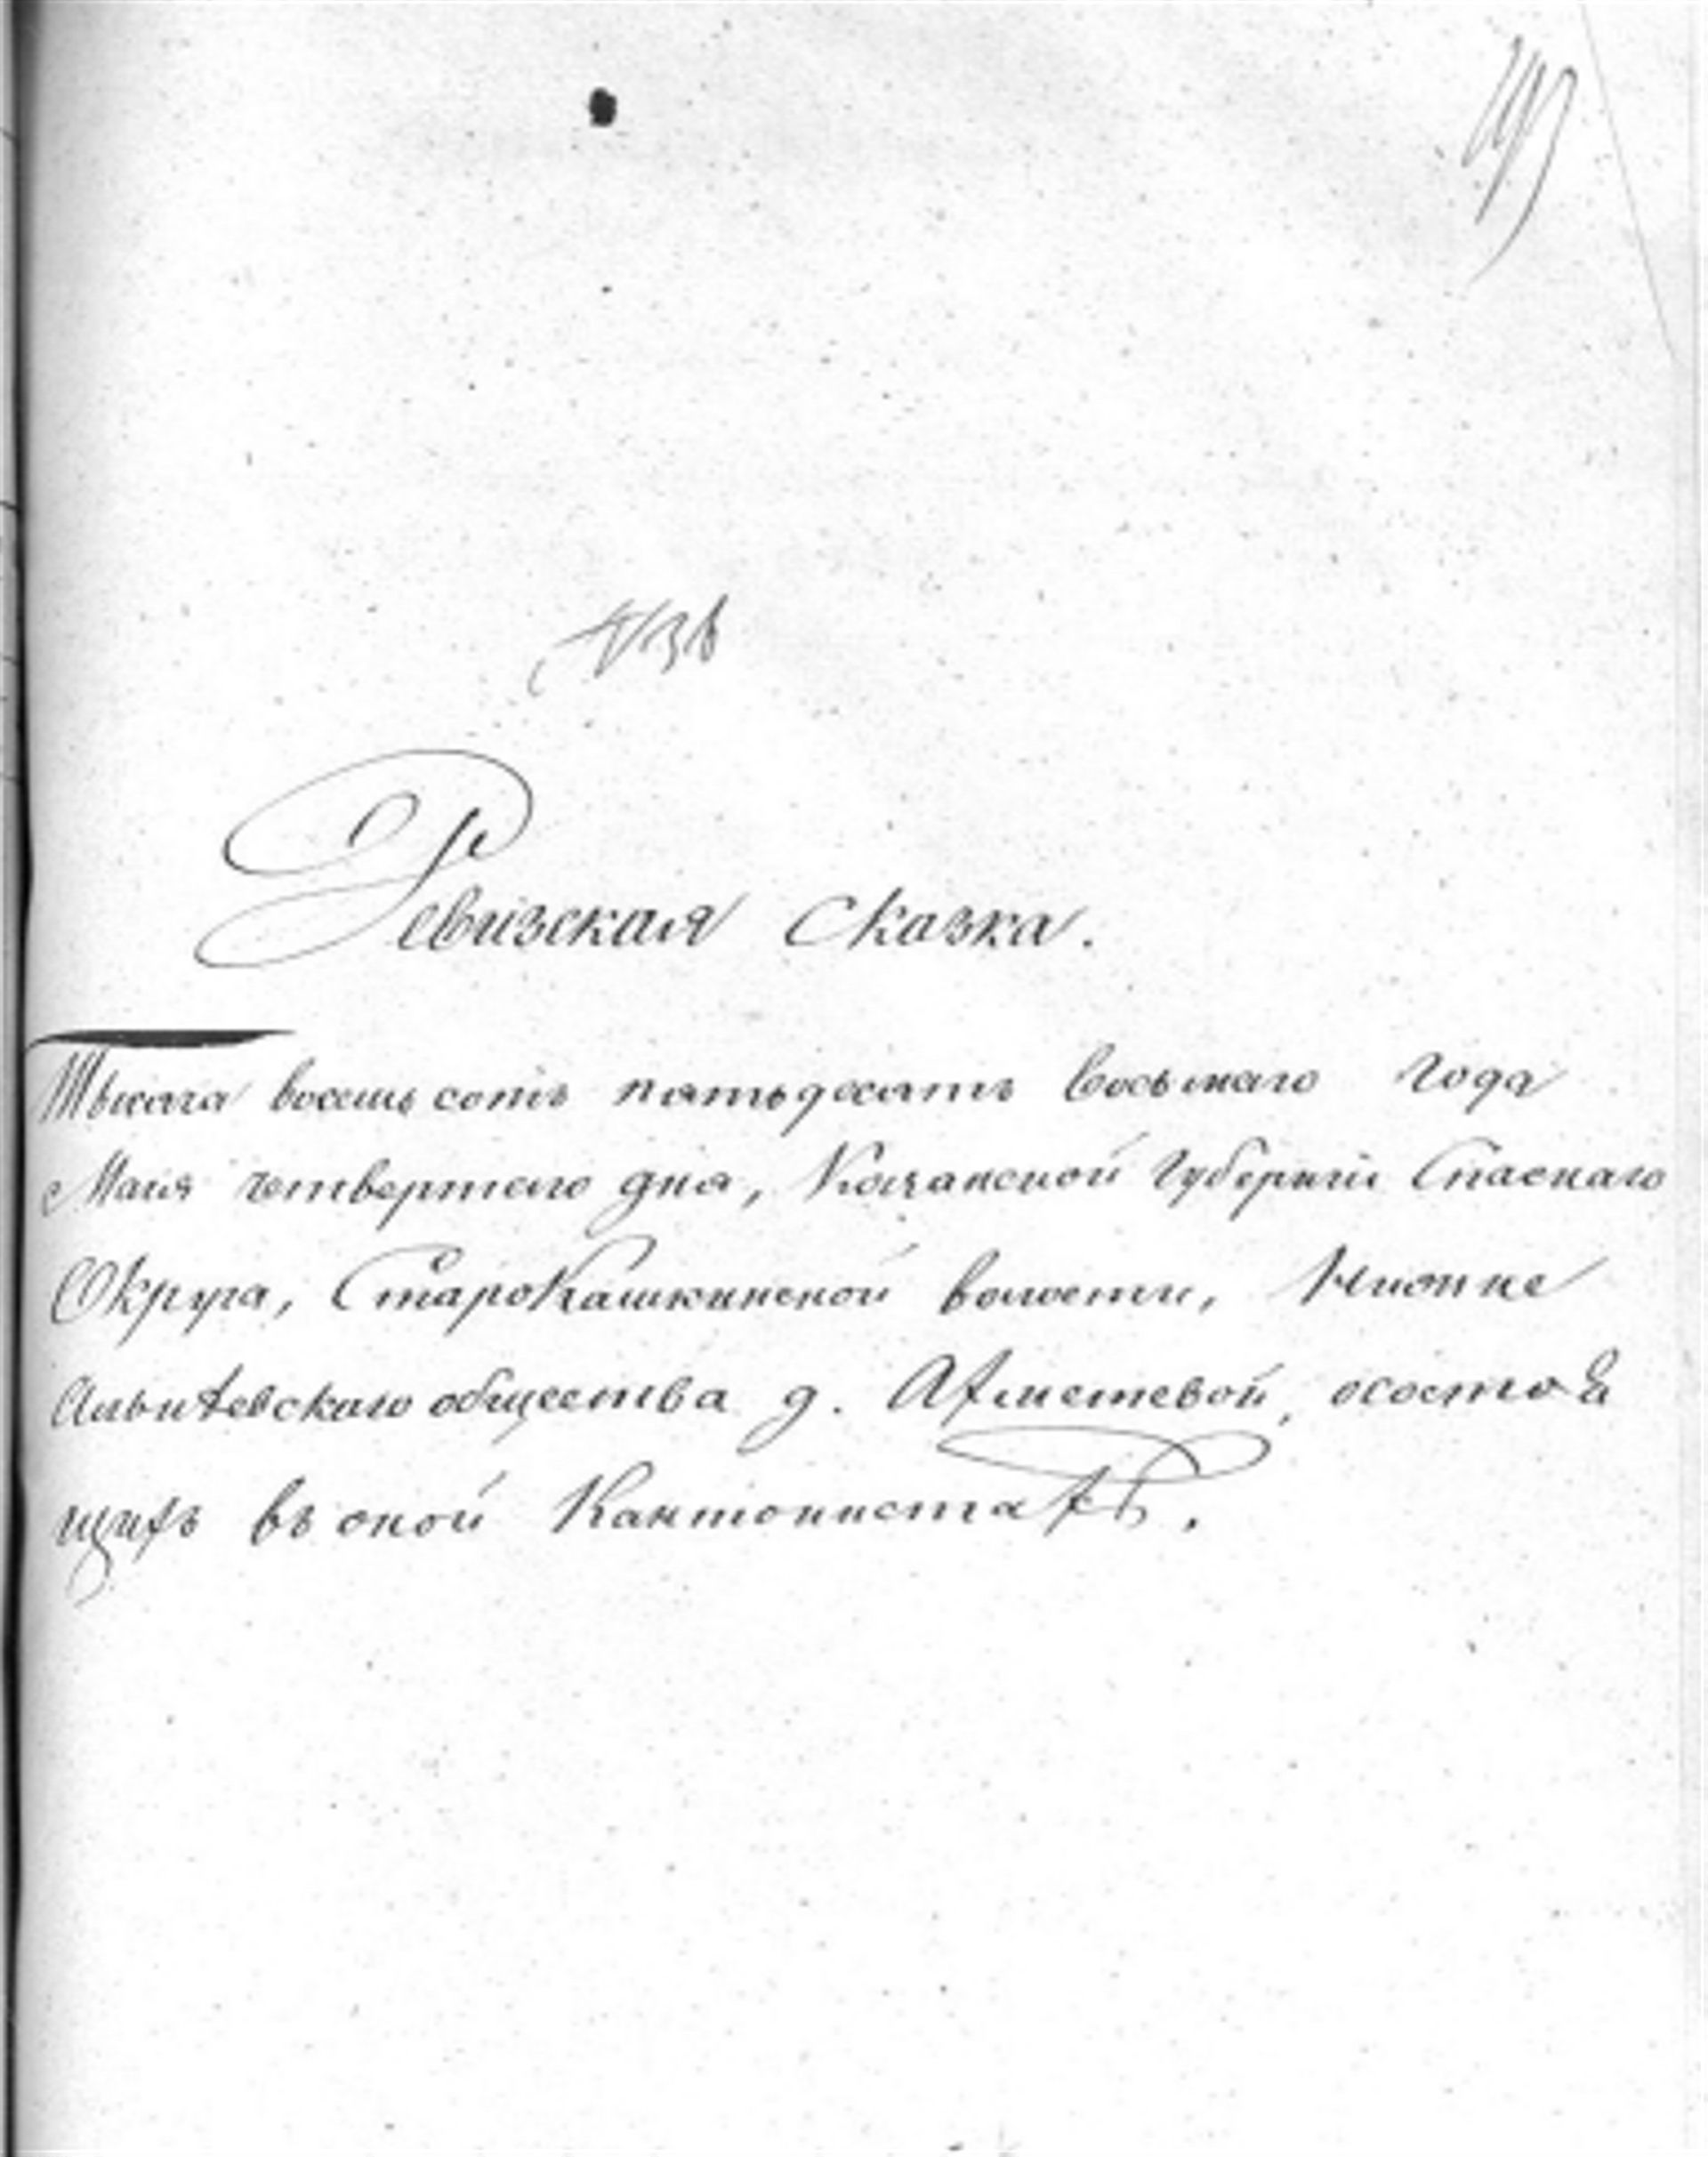 Ревизская Сказка.
Тысяча восемь сотъ пятьдесятъ восьмаго года
Маія четвертаго дня, Казанской Губерніи Спаскаго
Округа, СтароКашкинской волости, Нижне
Алькѣевскаго общества д. Ахметевой, осостоя
щихъ въ оной Кантонистахъ.